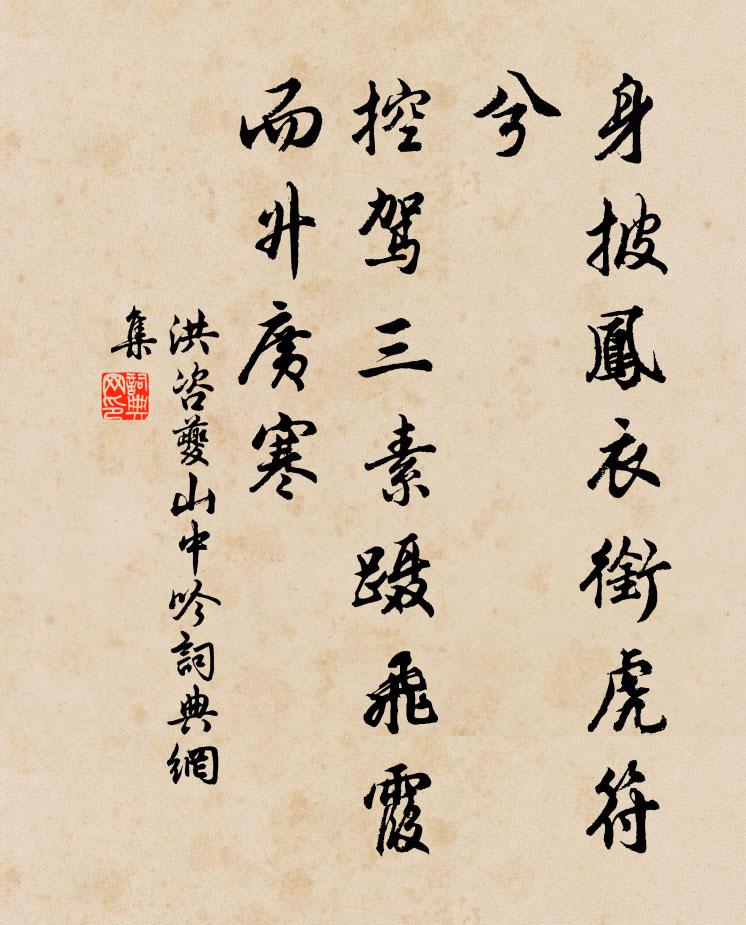 身披鳳衣銜虎符
兮
控駕三素躡飛霞
而升廣寒
洪咨夔山中吟詞典網
集
詞典網印